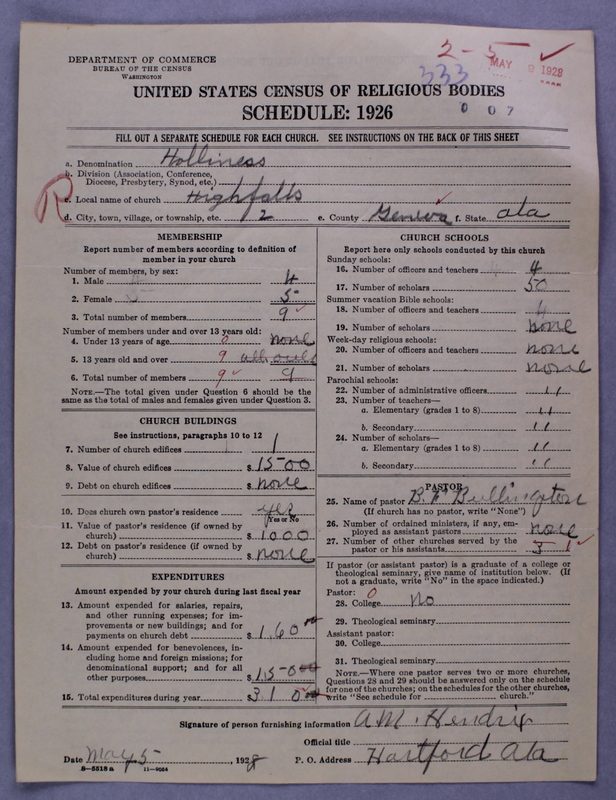 2-5 ✓
DEPARTMENT OF COMMERCE
BUREAU OF THE CENSUS
WASHINGTON
333
MAY 9 1928
UNITED STATES CENSUS OF RELIGIOUS BODIES
SCHEDULE: 1926
0 0 7
FILL OUT A SEPARATE SCHEDULE FOR EACH CHURCH. SEE INSTRUCTIONS ON THE BACK OF THIS SHEET
a. Denomination Holliness
b. Division (Association, Conference,
Diocese, Presbytery, Synod, etc.)
R c. Local name of church Highfalls
d. City, town, village, or township, etc. 2 e. County Geneva ✓ f. State Ala
MEMBERSHIP
Report number of members according to definition of
member in your church
Number of members, by sex:
1. Male 4
2. Female 5
3. Total number of members 9 ✓
Number of members under and over 13 years old:
4. Under 13 years of age 0 none
5. 13 years old and over 9
6. Total number of members 9 ✓ 9
NOTE.—The total given under Question 6 should be the
same as the total of males and females given under Question 3.
CHURCH BUILDINGS
See instructions, paragraphs 10 to 12
7. Number of church edifices 1
8. Value of church edifices $ 1500
9. Debt on church edifices $ none
10. Does church own pastor's residence yes
Yes or No
11. Value of pastor's residence (if owned by
church) $ 1000
12. Debt on pastor's residence (if owned by
church) $ none
EXPENDITURES
Amount expended by your church during last fiscal year
13. Amount expended for salaries, repairs,
and other running expenses; for im-
provements or new buildings; and for
payments on church debt $ 160
14. Amount expended for benevolences, in-
cluding home and foreign missions; for
denominational support; and for all
other purposes $ 150
15. Total expenditures during year $ 310
CHURCH SCHOOLS
Report here only schools conducted by this church
Sunday schools:
16. Number of officers and teachers 4
17. Number of scholars 50
Summer vacation Bible schools:
18. Number of officers and teachers 4
19. Number of scholars none
Week-day religious schools:
20. Number of officers and teachers none
21. Number of scholars none
Parochial schools:
22. Number of administrative officers 11
23. Number of teachers—
a. Elementary (grades 1 to 8) 11
b. Secondary 11
24. Number of scholars—
a. Elementary (grades 1 to 8) 11
b. Secondary 11
PASTOR
25. Name of pastor Bullington
(If church has no pastor, write "None")
26. Number of ordained ministers, if any, em-
ployed as assistant pastors none
27. Number of other churches served by the
pastor or his assistants 3 1 ✓
If pastor (or assistant pastor) is a graduate of a college or
theological seminary, give name of institution below. (If
not a graduate, write "No" in the space indicated.)
Pastor: 0
28. College No
29. Theological seminary
Assistant pastor:
30. College
31. Theological seminary
NOTE.—Where one pastor serves two or more churches,
Questions 28 and 29 should be answered only on the schedule
for one of the churches; on the schedules for the other churches,
write "See schedule for church."
Signature of person furnishing information A.M. Hendrix
Official title
Date May 5, 1928 P. O. Address Hartford Ala
8-5518a 11-9054